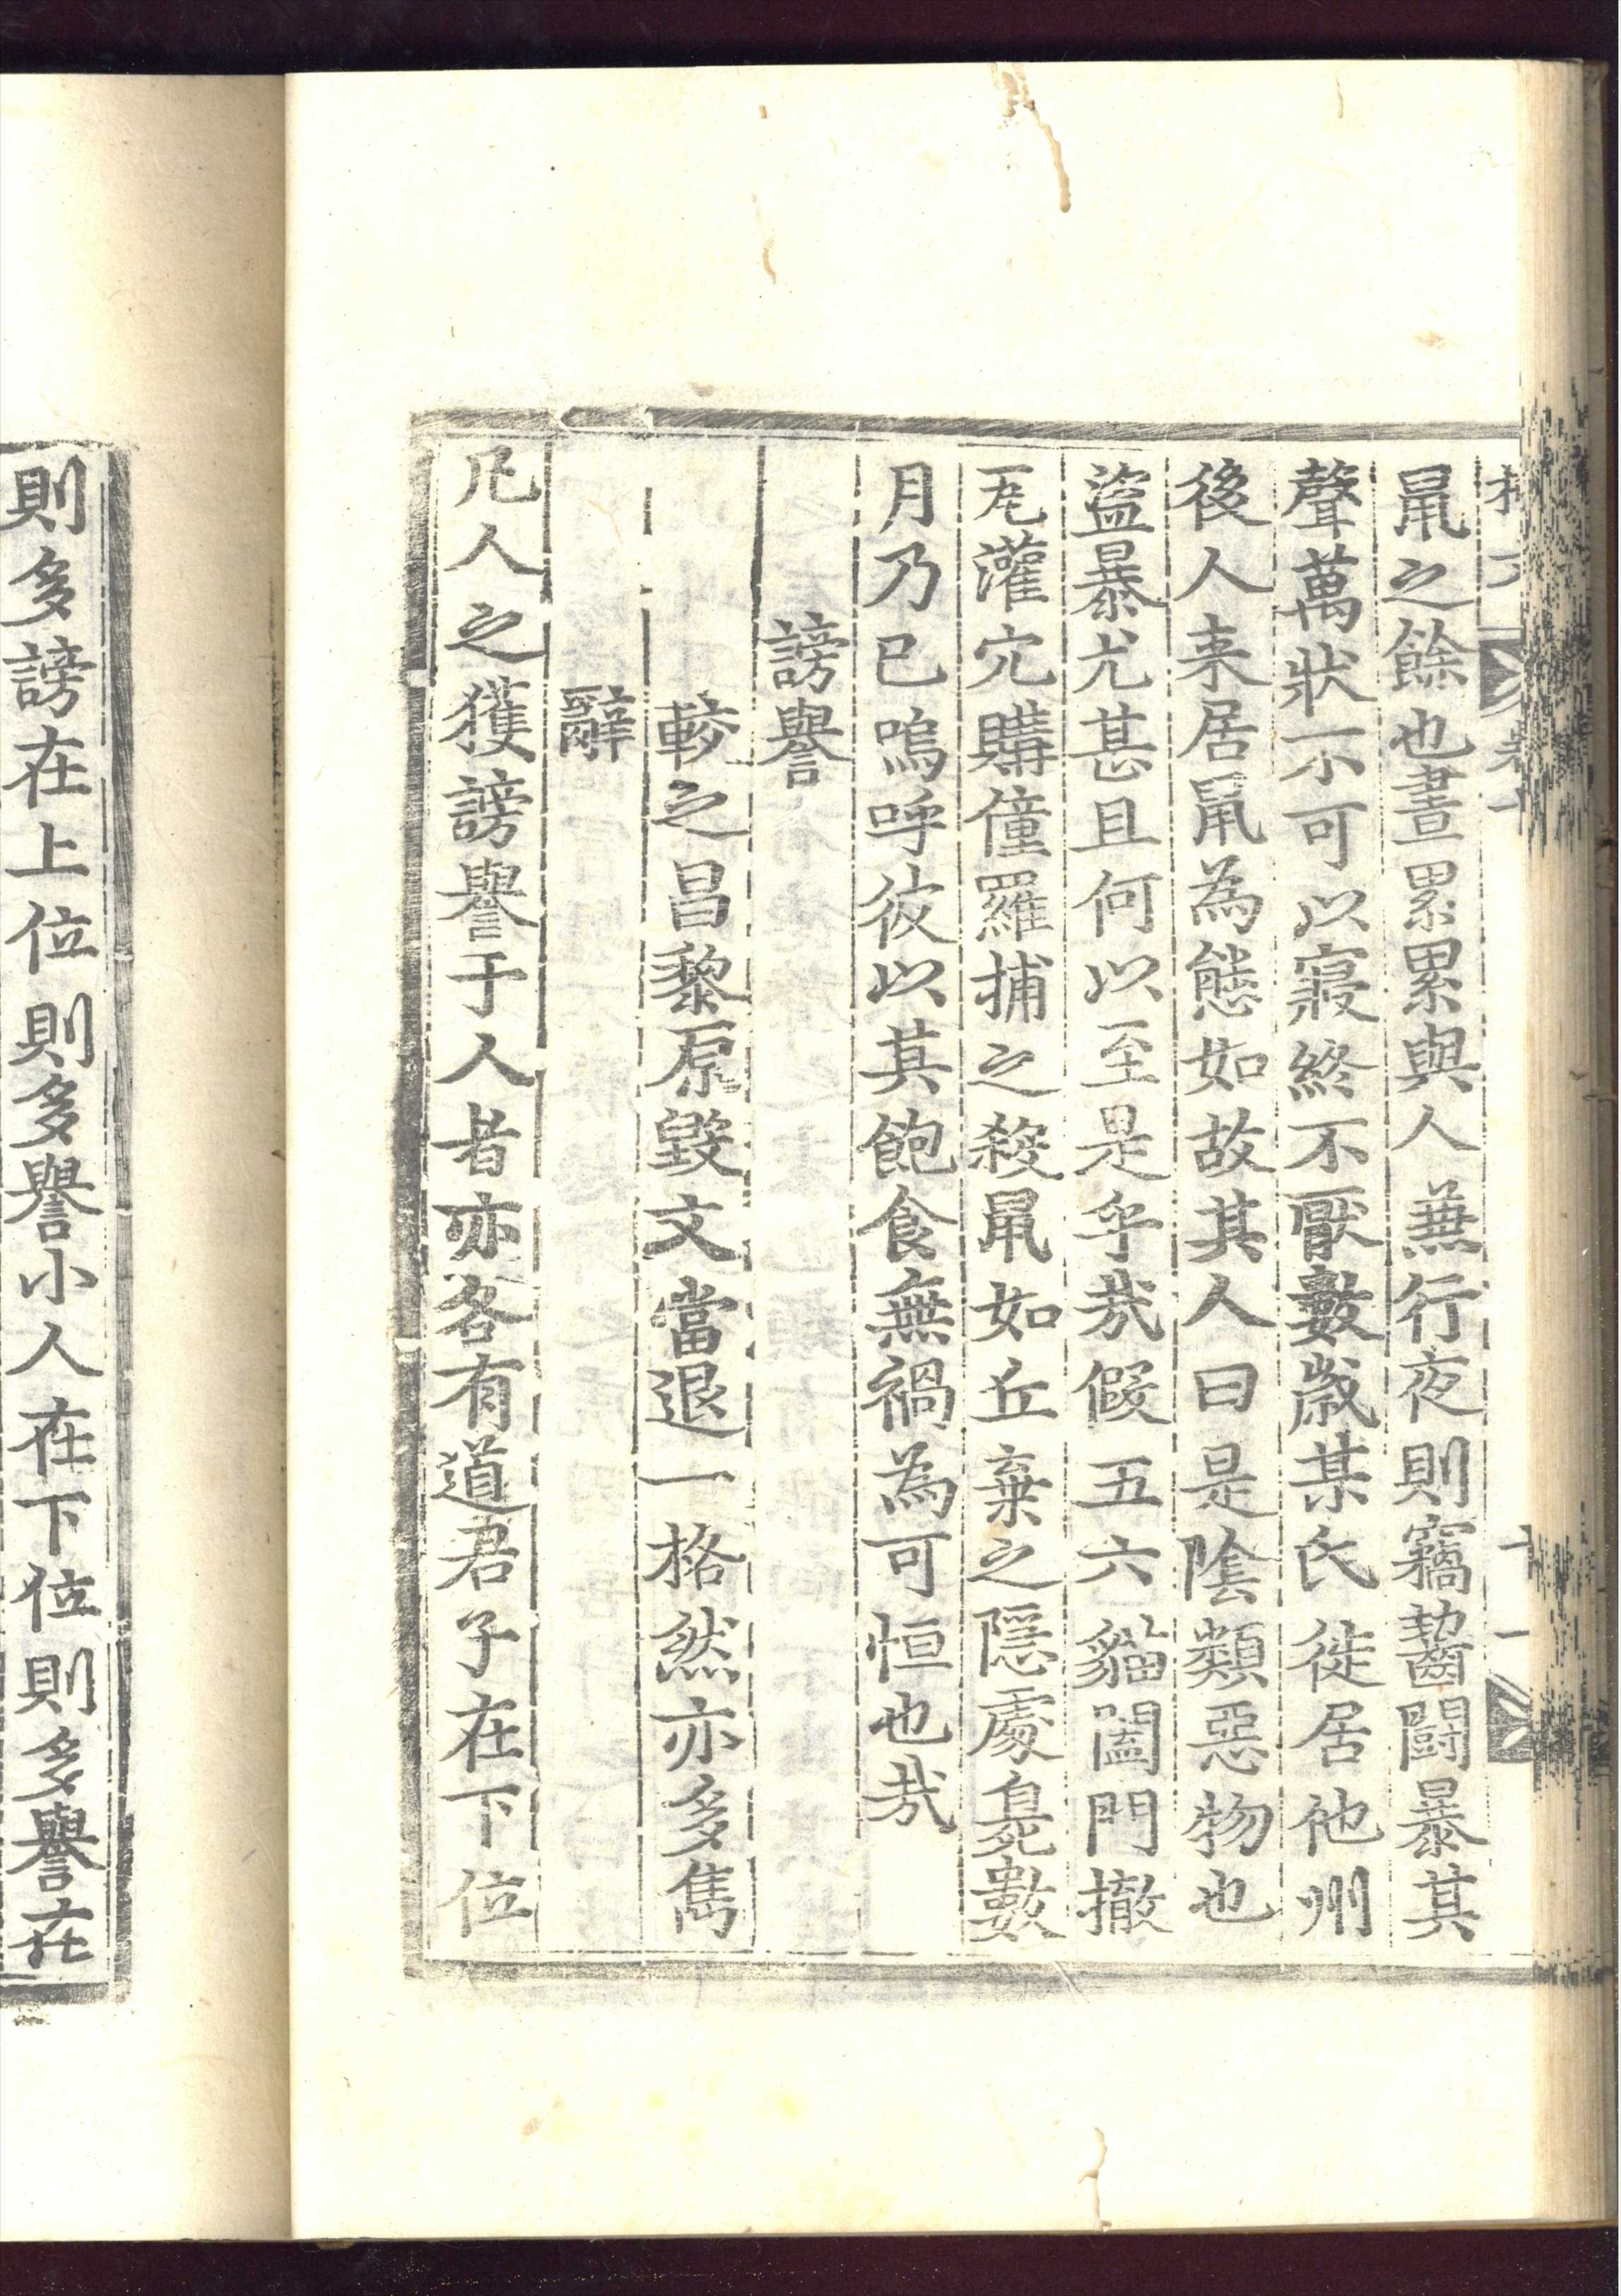 鼠之餘也晝累累與人兼行夜則竊齧闘暴其
聲萬狀不可以寢終不厭數歲某氏徙居他州
後人来居鼠為態如故其人曰是陰類惡物也
盜暴尤甚且何以至是乎哉假五六貓闔門撤
瓦灌穴購僮羅捕之殺鼠如丘棄之隱處臭數
月乃已嗚呼彼以其飽食無禍為可恒也哉
謗譽
較之昌黎原毀文當退一格然亦多雋
辭
凡人之獲謗譽于人者亦各有道君子在下位
則多謗在上位則多譽小人在下位則多譽在